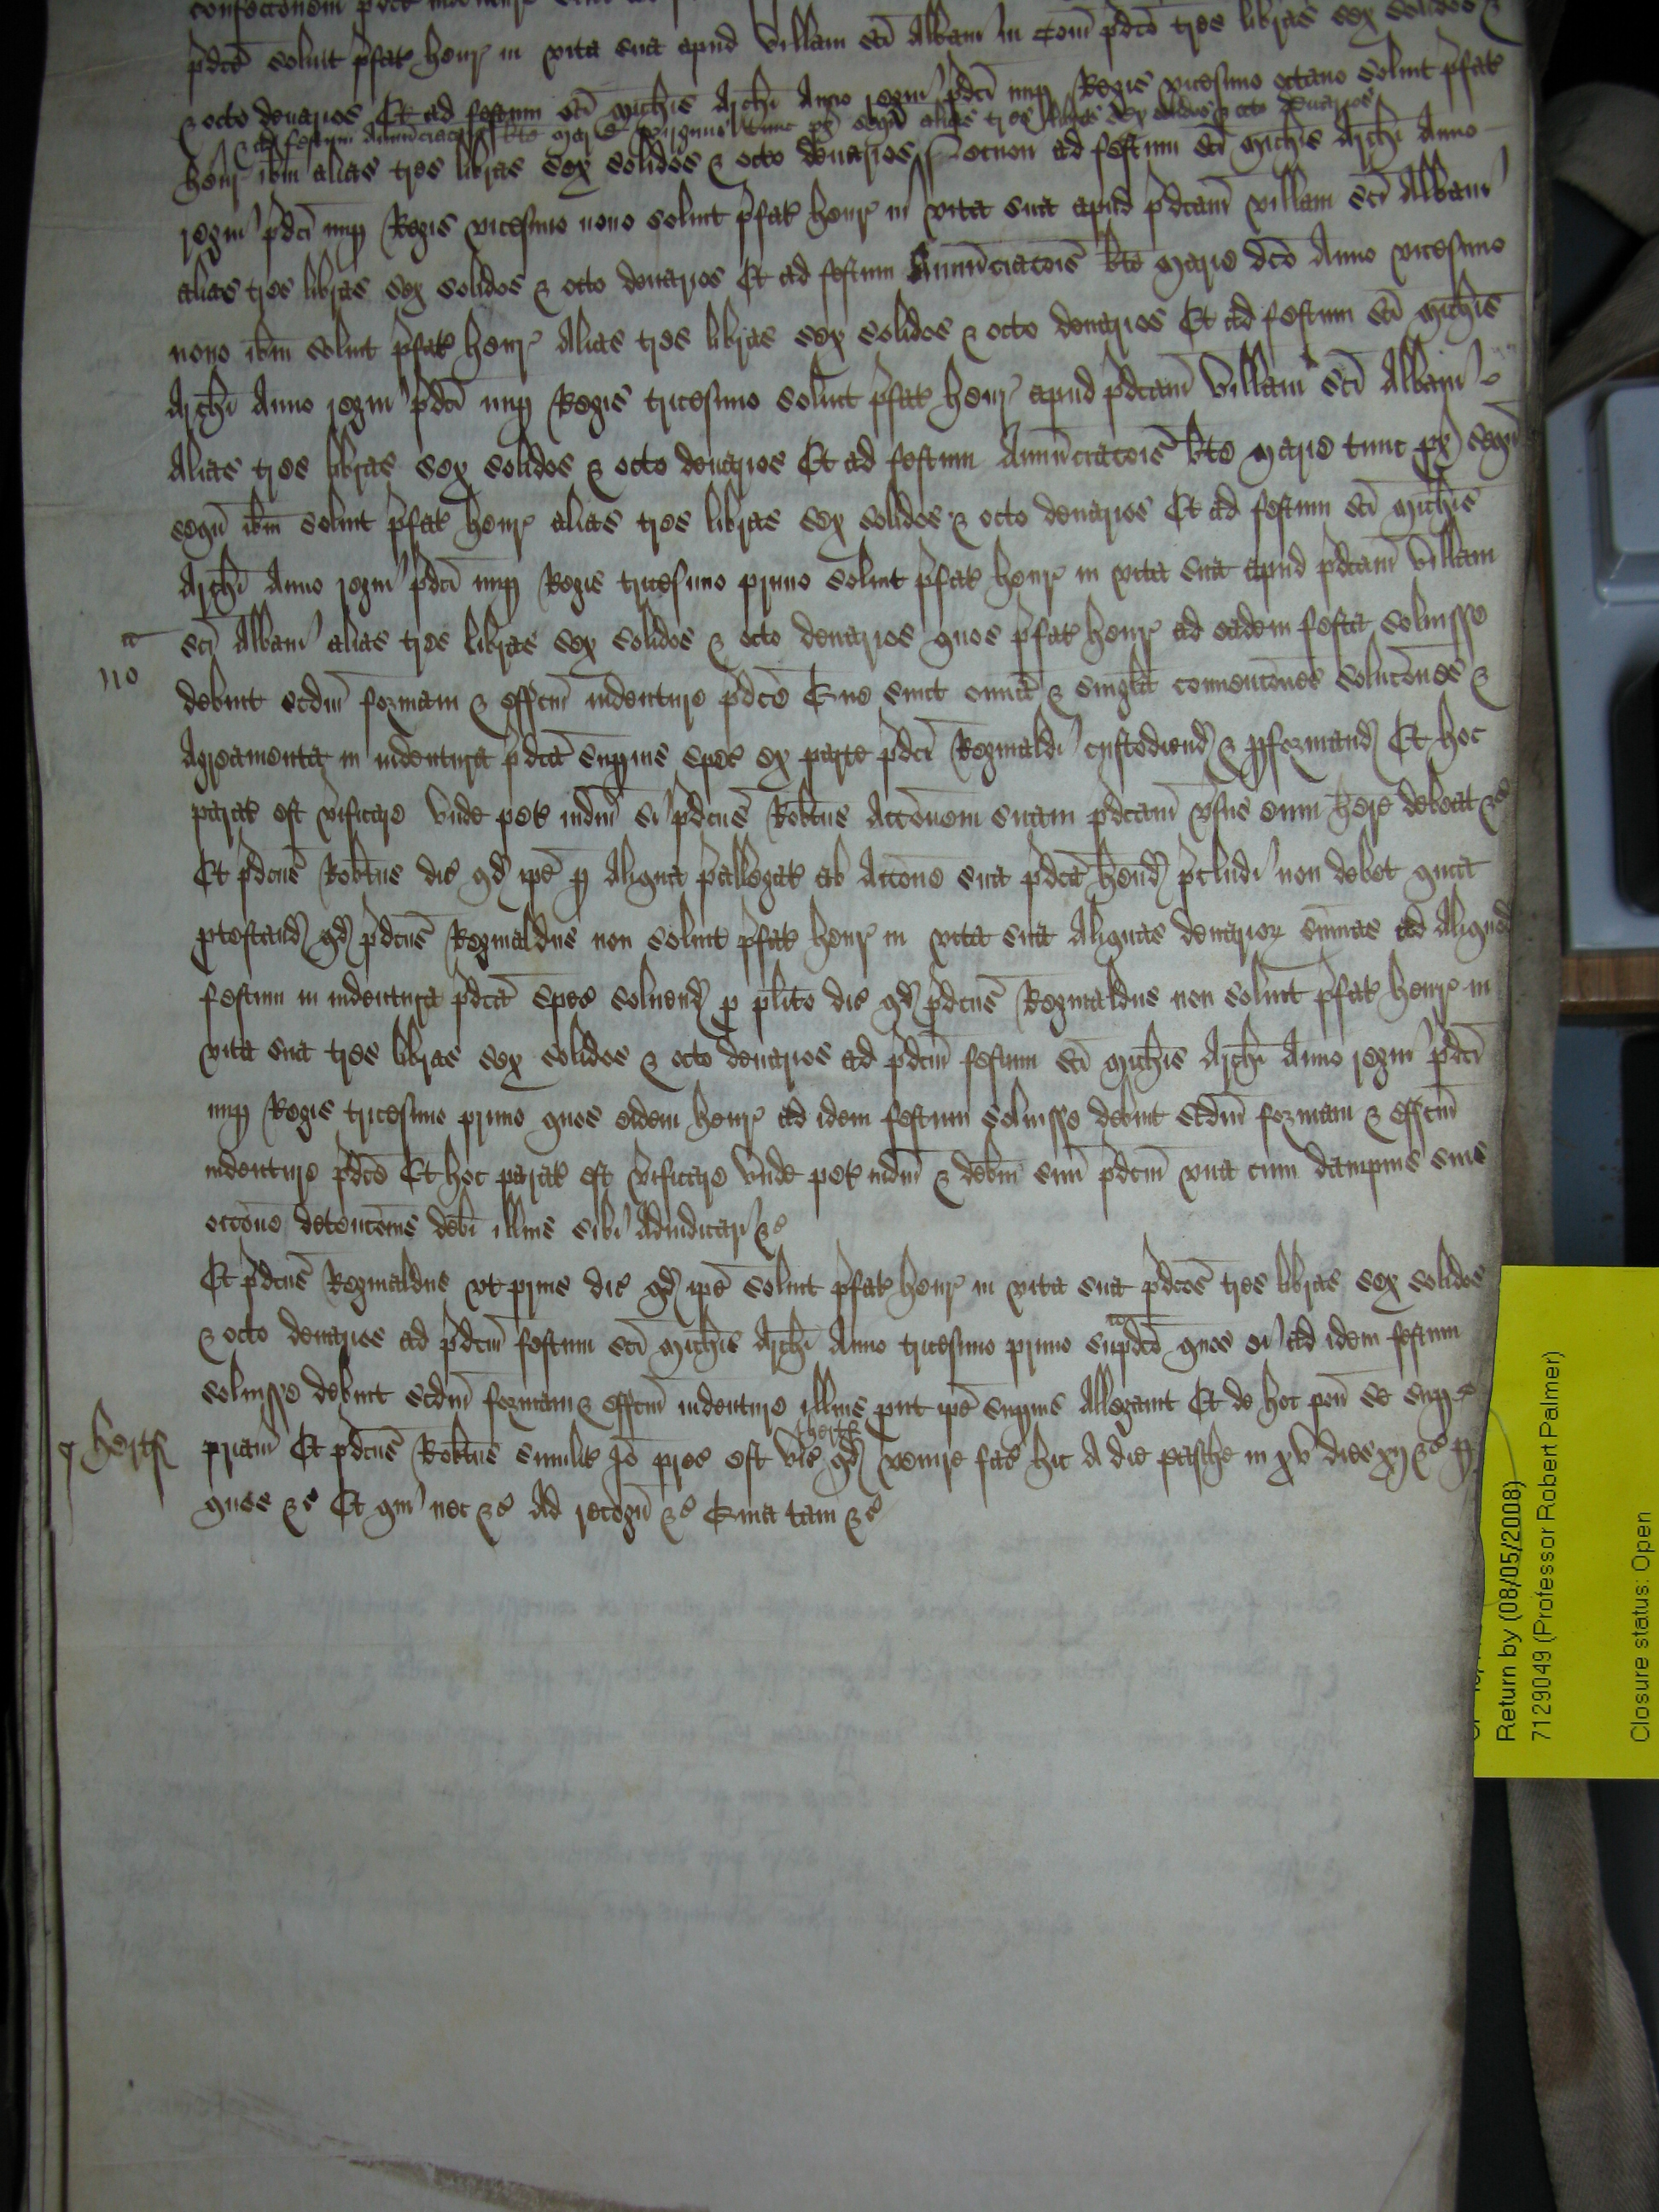 p̄dc̄e soluit p̄fat henr in vita sua apud villam sc̄i Albani in Com̄ p̄dc̄o tres libras sex solidos &
& octo denarios Et ad festum sc̄i Mich̄is Arch̄i Anno regni p̄dc̄i nup Regis vicesimo octauo soluit p̄fat
& ad festum Annunciac̄ bt̄e Mar tunc px̄ sequ alias tres libras sex solidos & octo denarios
henr ib̄m alias tres libras sex solidos & octo denarios Necnon ad festum sc̄i Mich̄is Arch̄i Anno
regni p̄dc̄i nup Regis vicesimo nono soluit p̄fat henr in vita sua apud p̄dcam̄ villam sc̄i Albani
alias tres libras sex solidos & octo denarios Et ad festum Annunciacōis bt̄e Marie dc̄o Anno vicesimo
nono ib̄m soluit p̄fat henr Alias tres libras sex solidos & octo denarios Et ad festum sc̄i Mich̄is
Arch̄i Anno regni p̄dc̄i nup Regis tricesimo soluit p̄fat henr apud p̄dcam̄ villam sc̄i Albani
Alias tres libras sex solidos & octo denarios Et ad festum Annunciacōis bt̄e Marie tunc px̄ sequ
sequ ib̄m soluit p̄fat henr alias tres libras sex solidos & octo denarios Et ad festum sc̄i Mich̄is
Arch̄i Anno regni p̄dc̄i nup Regis tricesimo primo soluit p̄fat henr in vita sua apud p̄dcam̄ villam
sc̄i Albani alias tres libras sex solidos & octo denarios quos p̄fat henr ad eadem festa soluisse
debuit scdm̄ formam & effc̄m indenture p̄dc̄e Que sunt omīa & singl̄a convencōnes solucōnes &
Agreamenta in indentura p̄dc̄a supius spec̄ ex parte p̄dc̄i Reginaldi custodiend & pformand Et hoc
parat est v̄ificare vnde pet iudm̄ si p̄dcus̄ Rob̄tus Accōnem suam p̄dcam̄ v̄sus eum h̄ere debeat &c
Et p̄dcus̄ Rob̄tus dic qd ip̄e p Aliqua p̄allegat ab Accōne sua p̄dc̄a h̄end p̄cludi non debet quia
ptestand qd p̄dcus̄ Reginaldus non soluit p̄fat henr in vita sua Aliquas denarior sum̄as ad Aliquod
festum in indentura p̄dc̄a spec̄ soluend p pl̄ito dic qd p̄dcus̄ Reginaldus non soluit p̄fat henr in
vita sua tres libras sex solidos & octo denarios ad p̄dcm̄ festum sc̄i Mich̄is Arch̄i Anno regni p̄dc̄i
nup Regis tricesimo primo quos eidem henr ad idem festum soluisse debuit scdm̄ formam & effc̄m
indenture p̄dc̄e Et hoc parat est v̄ificare vnde pet iudm̄ & deb̄m suū p̄dcm̄ vna cum dampnis suis
occōne detencōnis deb̄i illius sibi Adiudicari &c
Et p̄dcus̄ Reginaldus vt prius dic qd ip̄e soluit p̄fat henr in vita sua p̄dcos̄ tres libras sex solidos
& octo denarios ad p̄dcm̄ festum sc̄i Mich̄is Arch̄i Anno tricesimo primo sup̄dc̄o quos ei ad idem festum
soluisse debuit scdm̄ formam & effc̄m indenture illius put ip̄e supius Allegauit Et de hoc pon̄ se sup
Hertf priam̄ Et p̄dcus̄ Rob̄tus similit Io prec̄ est vic̄ qd venire fac̄ hic A die pasche in xv dies xij &c p
quos &c Et qui nec &c Ad recogn̄ &c Quia tam &c
Return by (08/05/2008)
7129049 (Professor Robert Palmer)
Closure status: Open